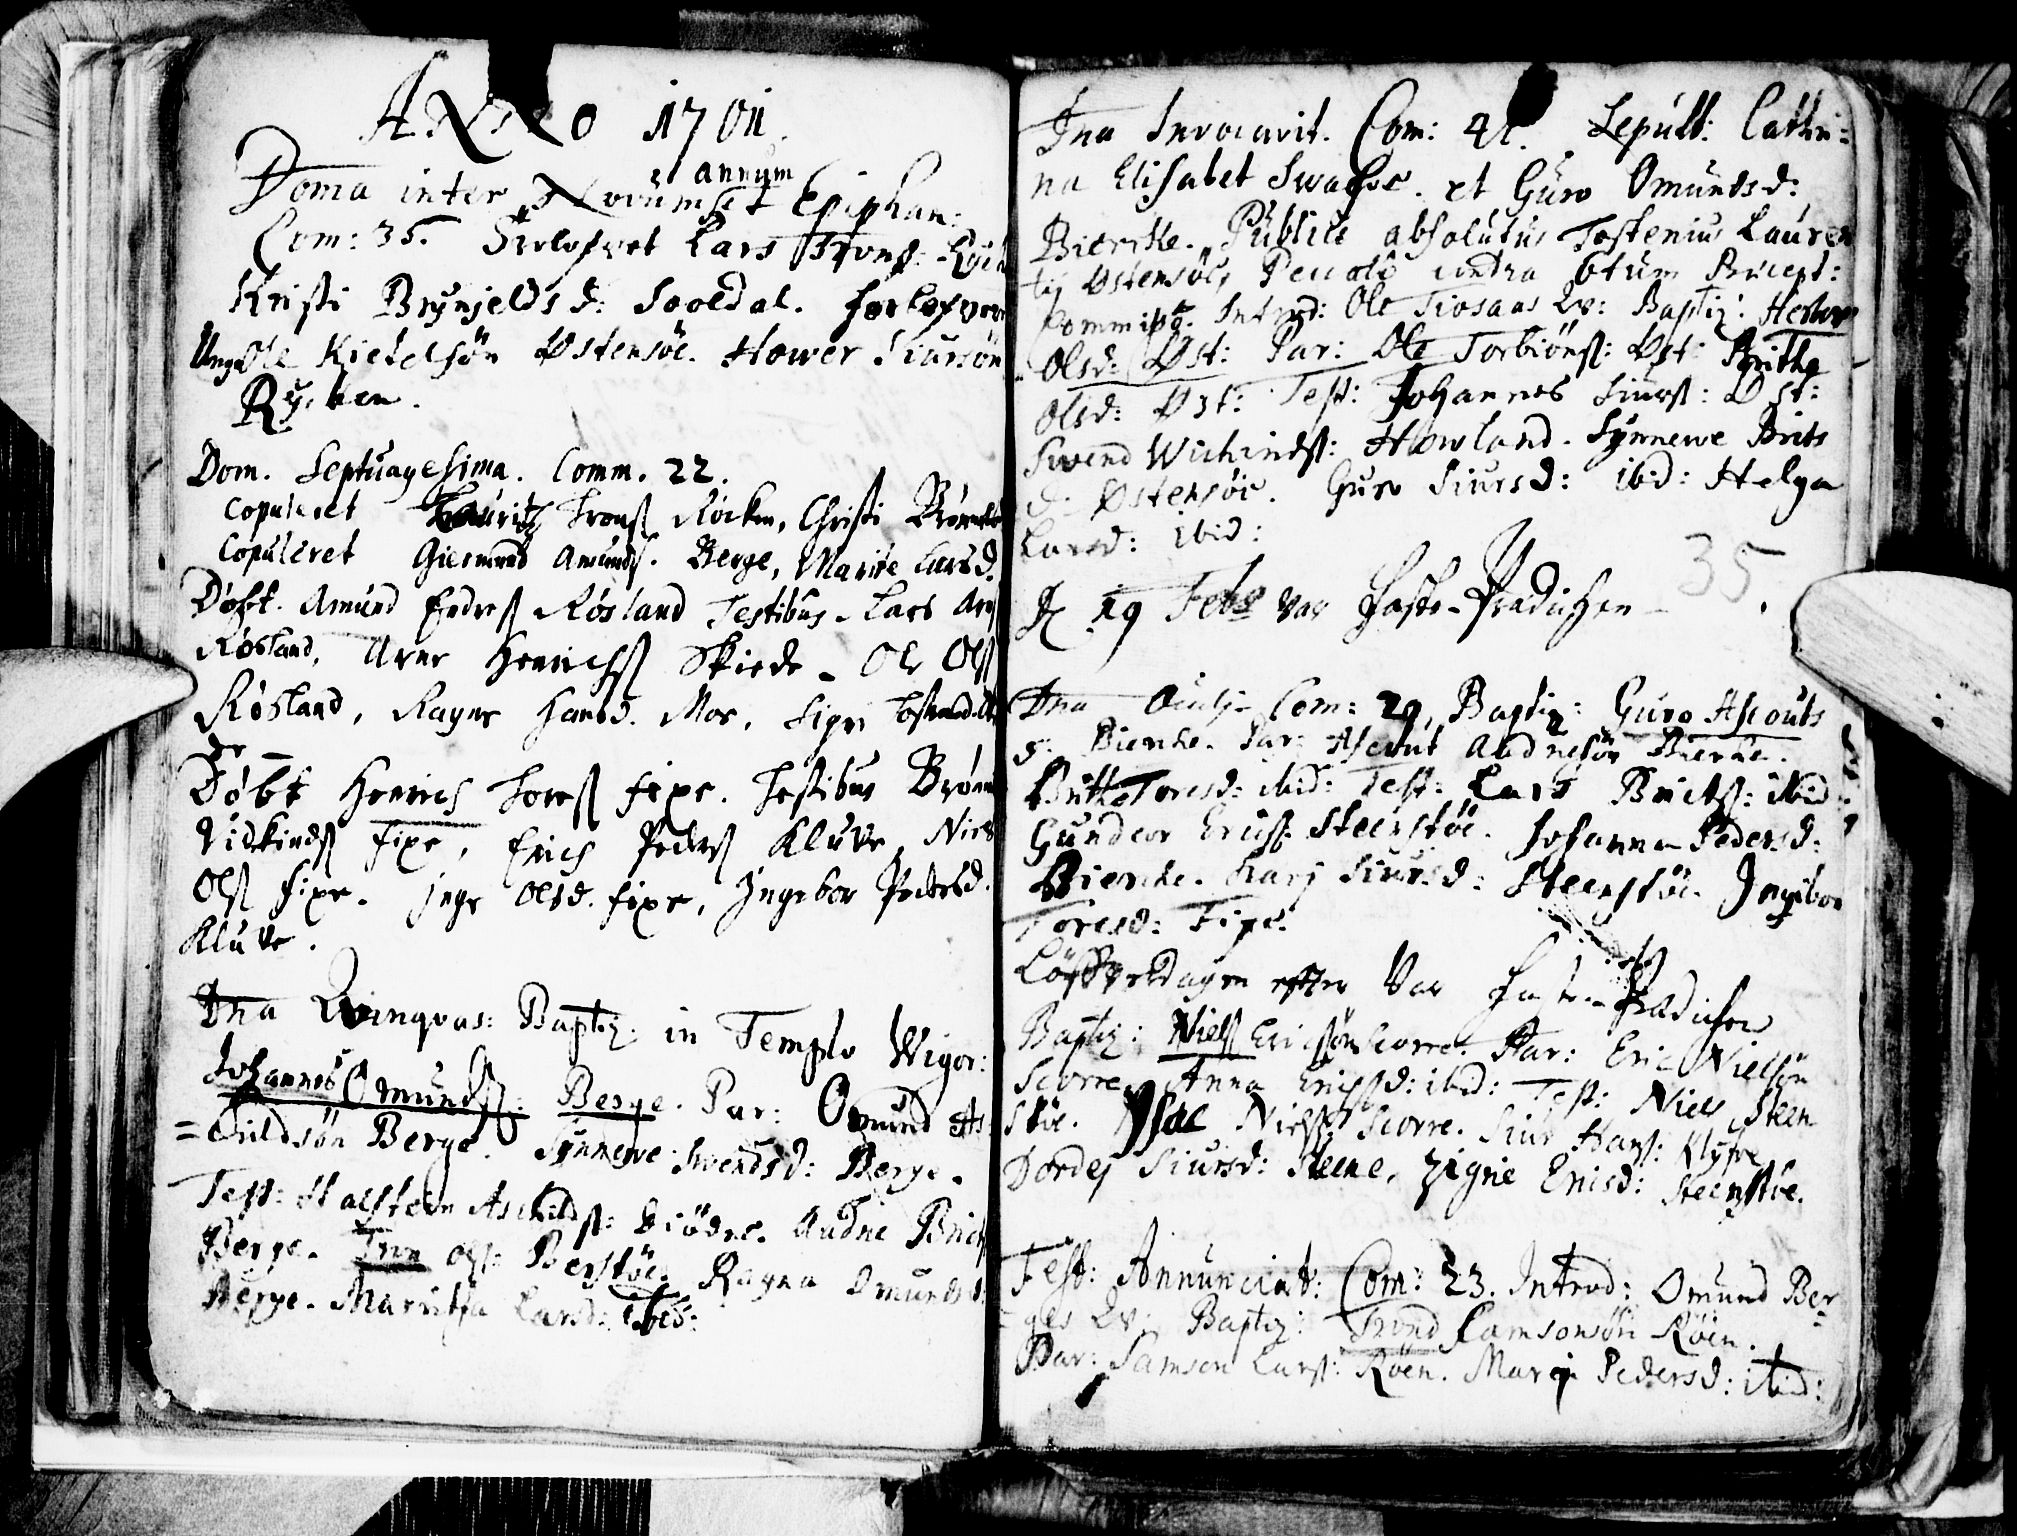 ANNO 1701.
annum
Doma inter Novum et Epiphan:
Com: 35. Trolofvet Lars Trons:
Kristi Brynjelds d: Sooldal. forlofvere
Unge Ole Kietelsön Östensöe. Hower Siursön
Rycken.
Dom. Septuagesima. Comm. 22.
Copuleret Lauritz Trons Röcken, Christi
Copuleret Giermund Amunds. Berge, Marite Larsd.
Döbt. Amund Endres Røsland Testibus. Lars
Røsland, Arne Henrichs Skiede - Ole Ols
Røsland, Ragne Hansd. Moe, Sigri
de
Döbt Henrich Tores fixe. Testibus
Vidkinds fixe, Erich Peders Kluve, Niels
Ols fixe. Inge Olsd. fixe, Ingebor Pedersd.
Kluve.
Dna Qvinqvas: Baptiz: in Templo Wigor:
Johannes Omunds: Berge. Par: Omund As:
=childsön Berge. Synnewe Swendsd: Berge.
Test: Halstein Aschilds: Audne
Berge. Tron Ols: Berstöe. Ragna Omundsd:
Berge. Maritha Larsd: ibid:
Dna Invocavit. Com: 41. Sepult: Cathri:
na Elisabet. et Guro Omundsd:
Biercke. Publicè absolutus Tostenius Lauren
tij Östensöe, Peccatô contra 6tum Præcept:
Commissô. Introd: Ole Tiosaas Qv: Baptiz:
Olsd: Öst: Par: Ole Torbiöns: Öst: Britha
Olsd: Öst: Test: Johannes Siurs: Öst:
Swend Wichinds: Howland. Synnewe Brits
d: Östensöe. Guro Siursd: ibid: Helga
Larsd: ibid:
35
19 Febr var Faste-Prædichen
Dna Oculj Com: 29, Baptiz: Guro Ascouts
d: Biercke. Par: Ascout Audnesön Bierche.
Britha Toresd: ibid: Test: Lars Bricts: ibid:
Gundcor Erics: Steenstöe. Johanna Pedersd:
Bierche. Karj Siursd: Steenstöe. Ingebor
Toresd: Fixe.
Löfverdagen efter var Faste-Prædichen
Baptiz: Niels Ericsön Scorre. Par: Eric Nielsön
Scorre. Anna Ericsd: ibid: Test: Niels Steen
stöe. Isac Niels: Scorre. Siur Hans: Klyfve
Dordej Siursd: Steene, Zigrie Ericsd: Steenstöe.
Fest: Annunciat: Com: 23. Introd: Omund Ber
ges Qv: Baptiz: Trond Samsonsön Röen.
Par: Samson Lars: Röen. Marij Pedersd: ibid: